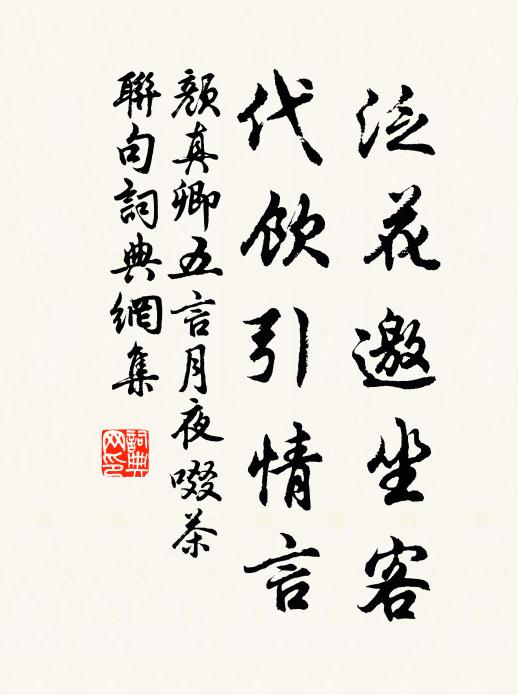 泛花邀坐客
代飲引情言
顏真卿五言月夜啜茶
聯句詞典網集
詞典網印